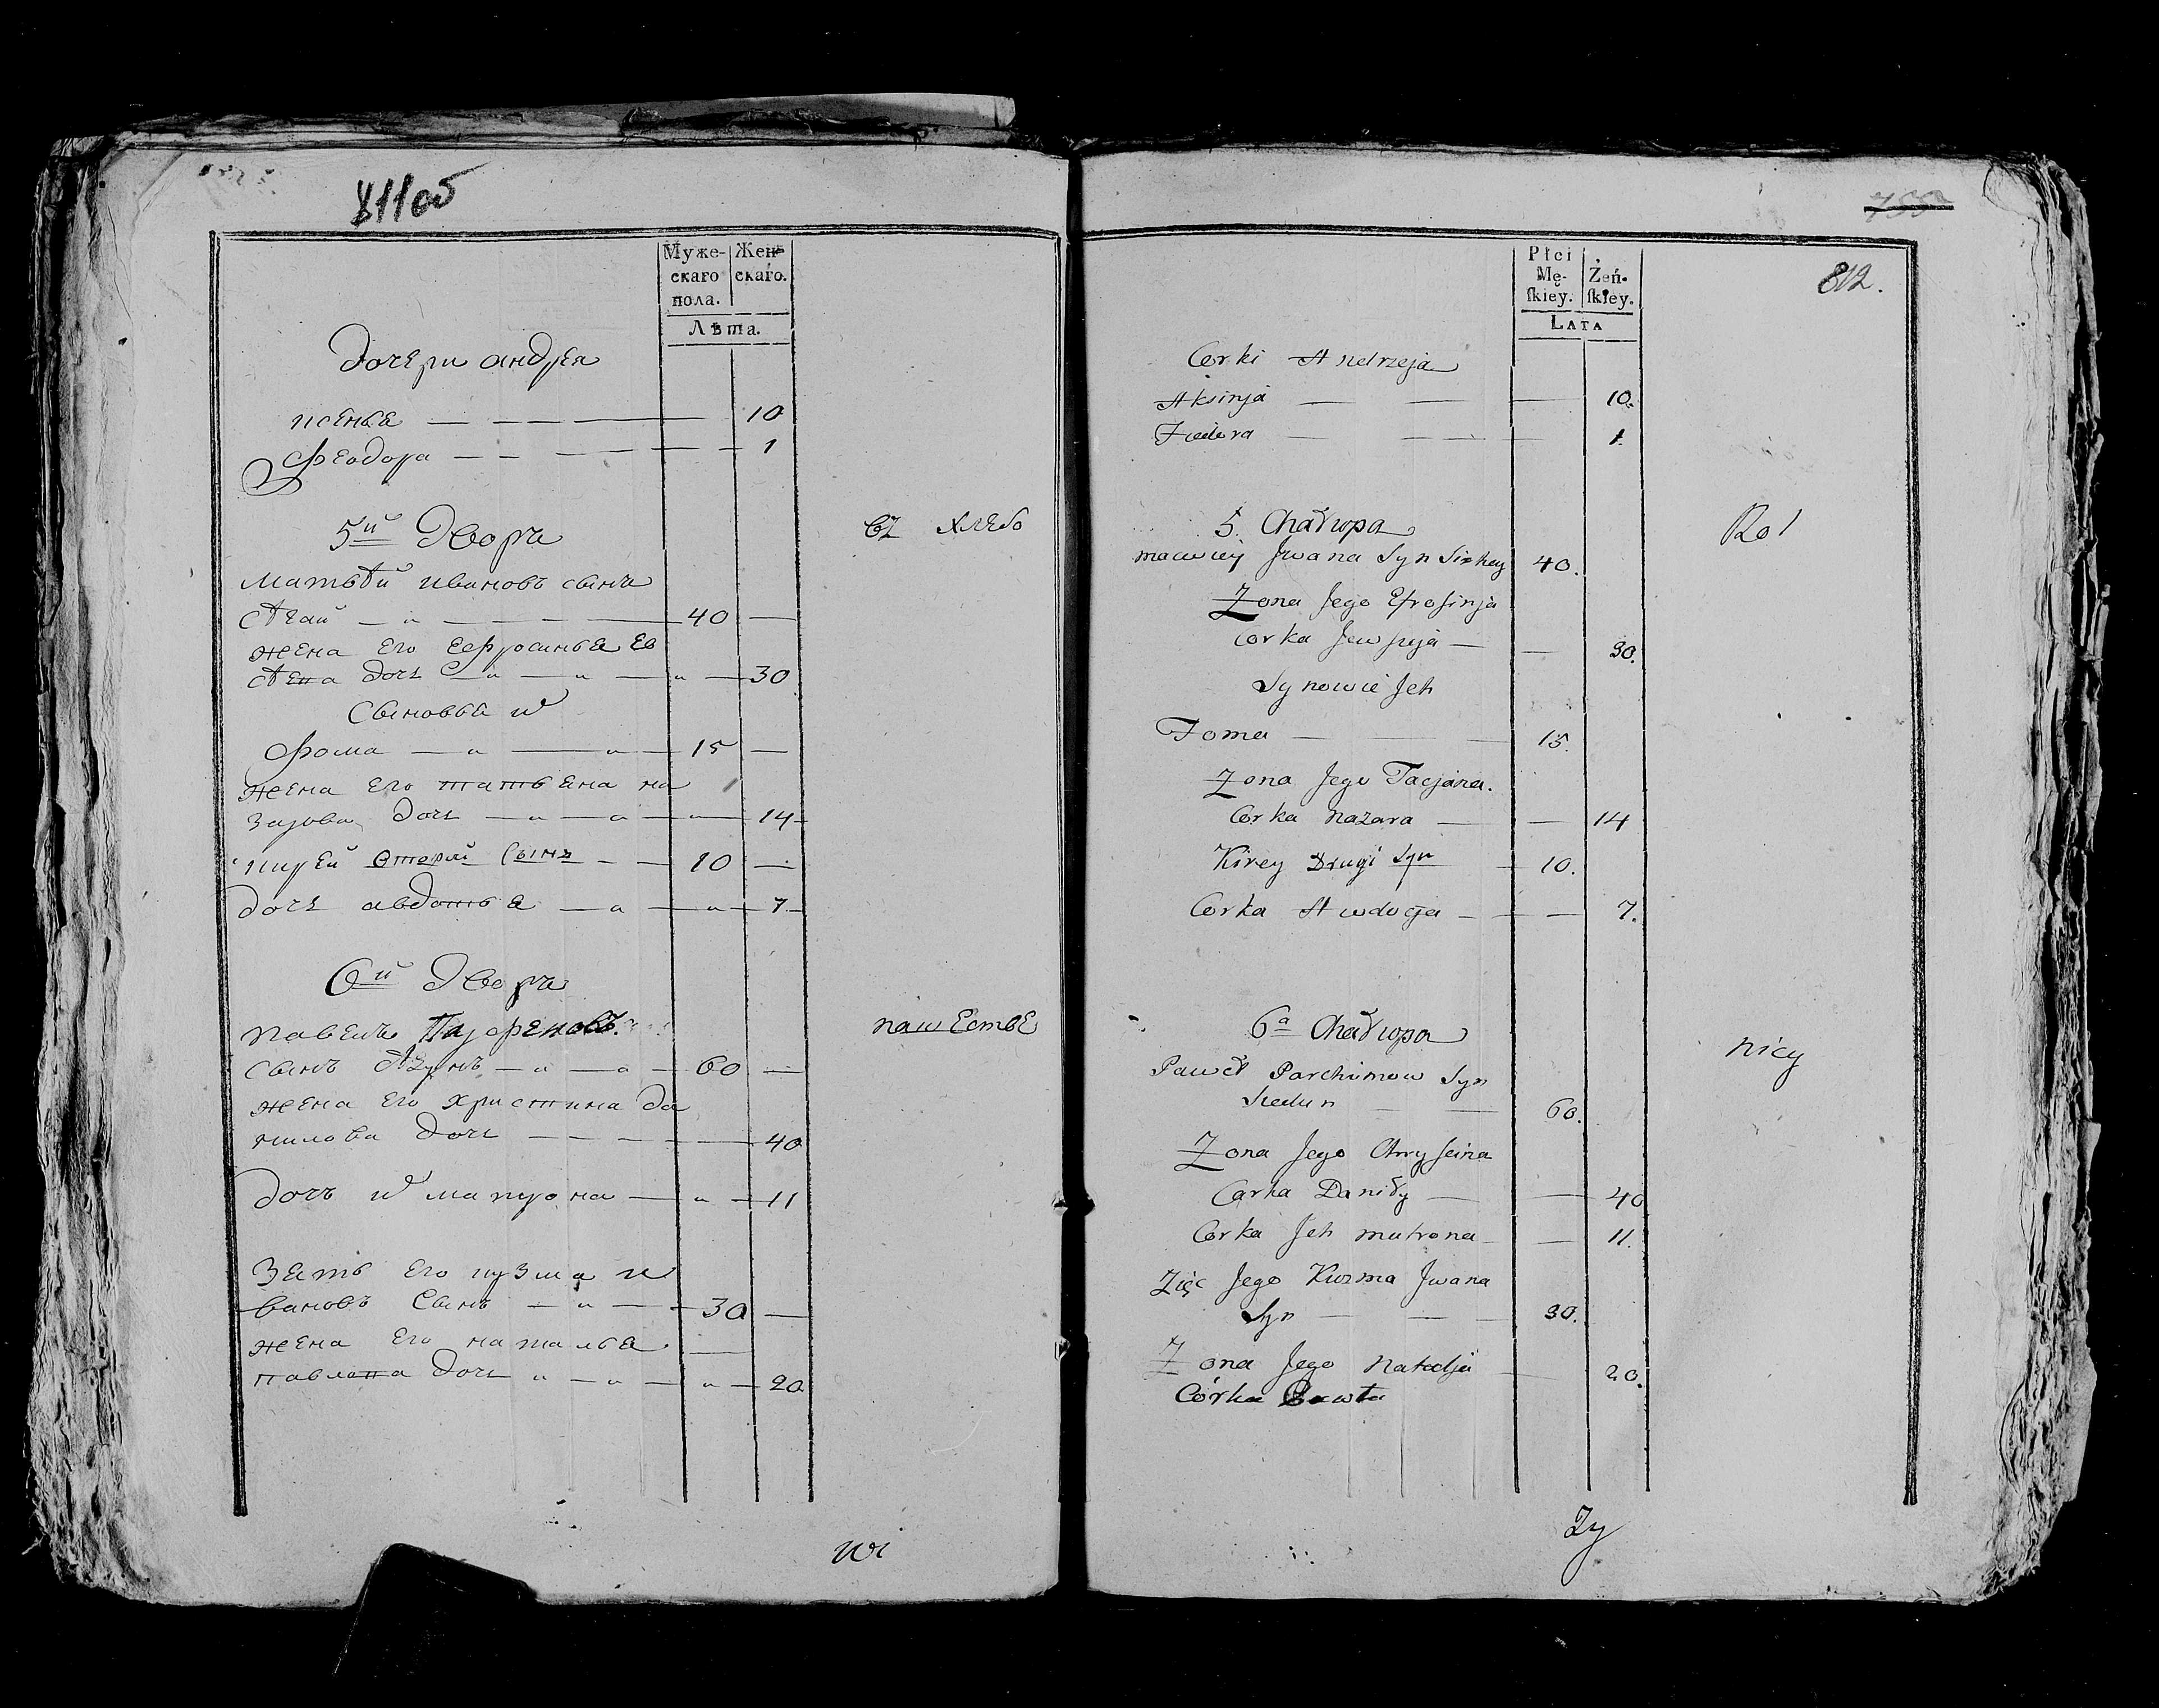 811об
Муже-
скаго
пола.
Жен-
скаго.
Лѣта.
дочери андрея
ксенья 10
феодора 1
5й дворъ
въ хлебо
матвѣй ивановъ сынъ
40
жена его еефросинья ев
дочь 30
сыновья и
фома 15
жена его татьяна на
зарова дочь 14
кирей вторый сынъ 10
дочь авдотья 7
6й дворъ
пашестве
павелъ Парфеновъ
сынъ 60
жена его христина да
нилова дочь 40
дочь и матрона 11
зять его кузма и
вановъ сынъ 30
жена его наталья
павлова дочь 20
Płci
Mę-
skiey.
Żeń-
skiey.
Lata
812.
Corki Andrzeja
Aksinja 10.
Fiedora 1.
5. Chałupa
Rol
Maciej Jwana Syn 40.
Zona Jego Efrosinja
Corka 30.
Synowie Jch
Foma 15.
Zona Jego Tacjana.
Corka Nazara 14
Kirey Drugi Syn 10.
Corka Awdocja 7.
6a Chałupa
nicy
Paweł Parchimow Syn
60.
Zona Jego
Corka Daniły 40
Corka Jch matrona 11.
Zięć Jego Kuzma Jwana
Syn 30.
Zona Jego Natalja 20.
Córka Pawła
Zy